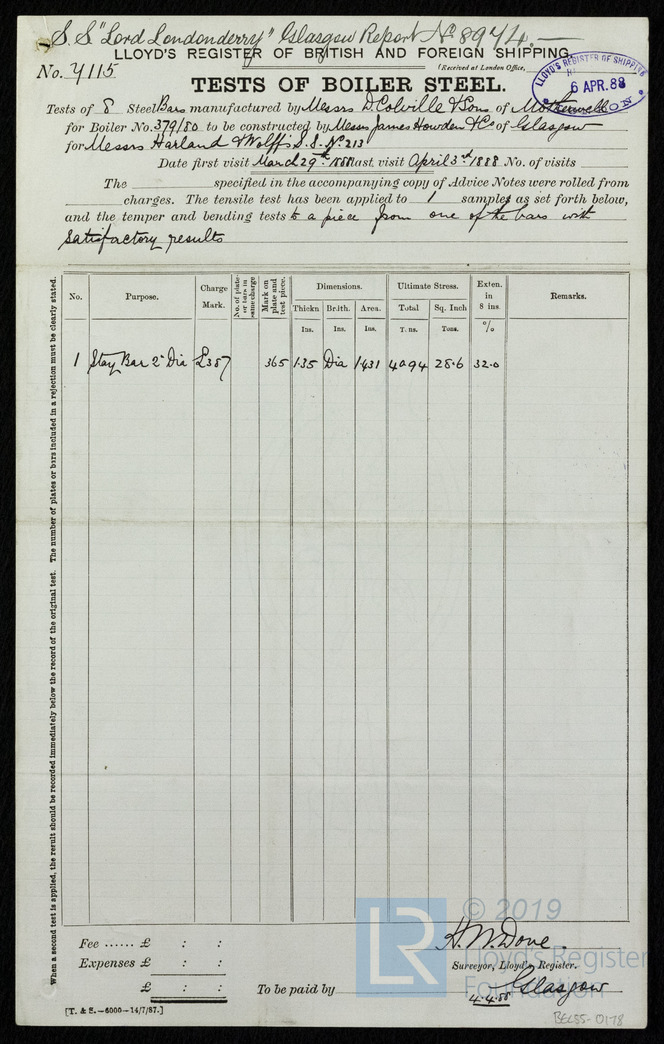 S.S. "Lord Londonderry" Glasgow Report No 8974.—
LLOYD'S REGISTER OF BRITISH AND FOREIGN SHIPPING.
No. 4115
(Received at London Office,
LLOYD'S REGISTER OF SHIPPING
6 APR. 88
LONDON
TESTS OF BOILER STEEL.
Tests of 8 Steel Bars manufactured by Messrs D. Colville & Sons of Motherwell
for Boiler No. 379/80 to be constructed by Messrs James Howden & Co of Glasgow
for Messrs Harland & Wolff's S.S. No. 213
Date first visit March 29th 1888 last visit April 3rd 1888 No. of visits
The specified in the accompanying copy of Advice Notes were rolled from
charges. The tensile test has been applied to 1 samples as set forth below,
and the temper and bending tests to a piece from one of the bars with
satisfactory results
When a second test is applied, the result should be recorded immediately below the record of the original test. The number of plates or bars included in a rejection must be clearly stated.
No. Purpose. Charge Mark. No. of plates or bars in same charge Mark on plate and test piece. Dimensions. Ultimate Stress. Exten. in 8 ins. Remarks.
Thickn Br.ith. Area. Total Sq. Inch
Ins. Ins. Ins. T. ns. Tons. %
1 Stay Bar 2" Dia £387 365 1.35 Dia 1.431 40.94 28.6 32.0
Fee ...... £ : :
Expenses £ : :
£ : :
To be paid by
H. W. Dove.
Surveyor, Lloyd's Register.
Glasgow
4.4.88
[T. & S.—6000—14/7/87.]
BEL55-0178
LR
© 2019
Lloyd's Register
Foundation